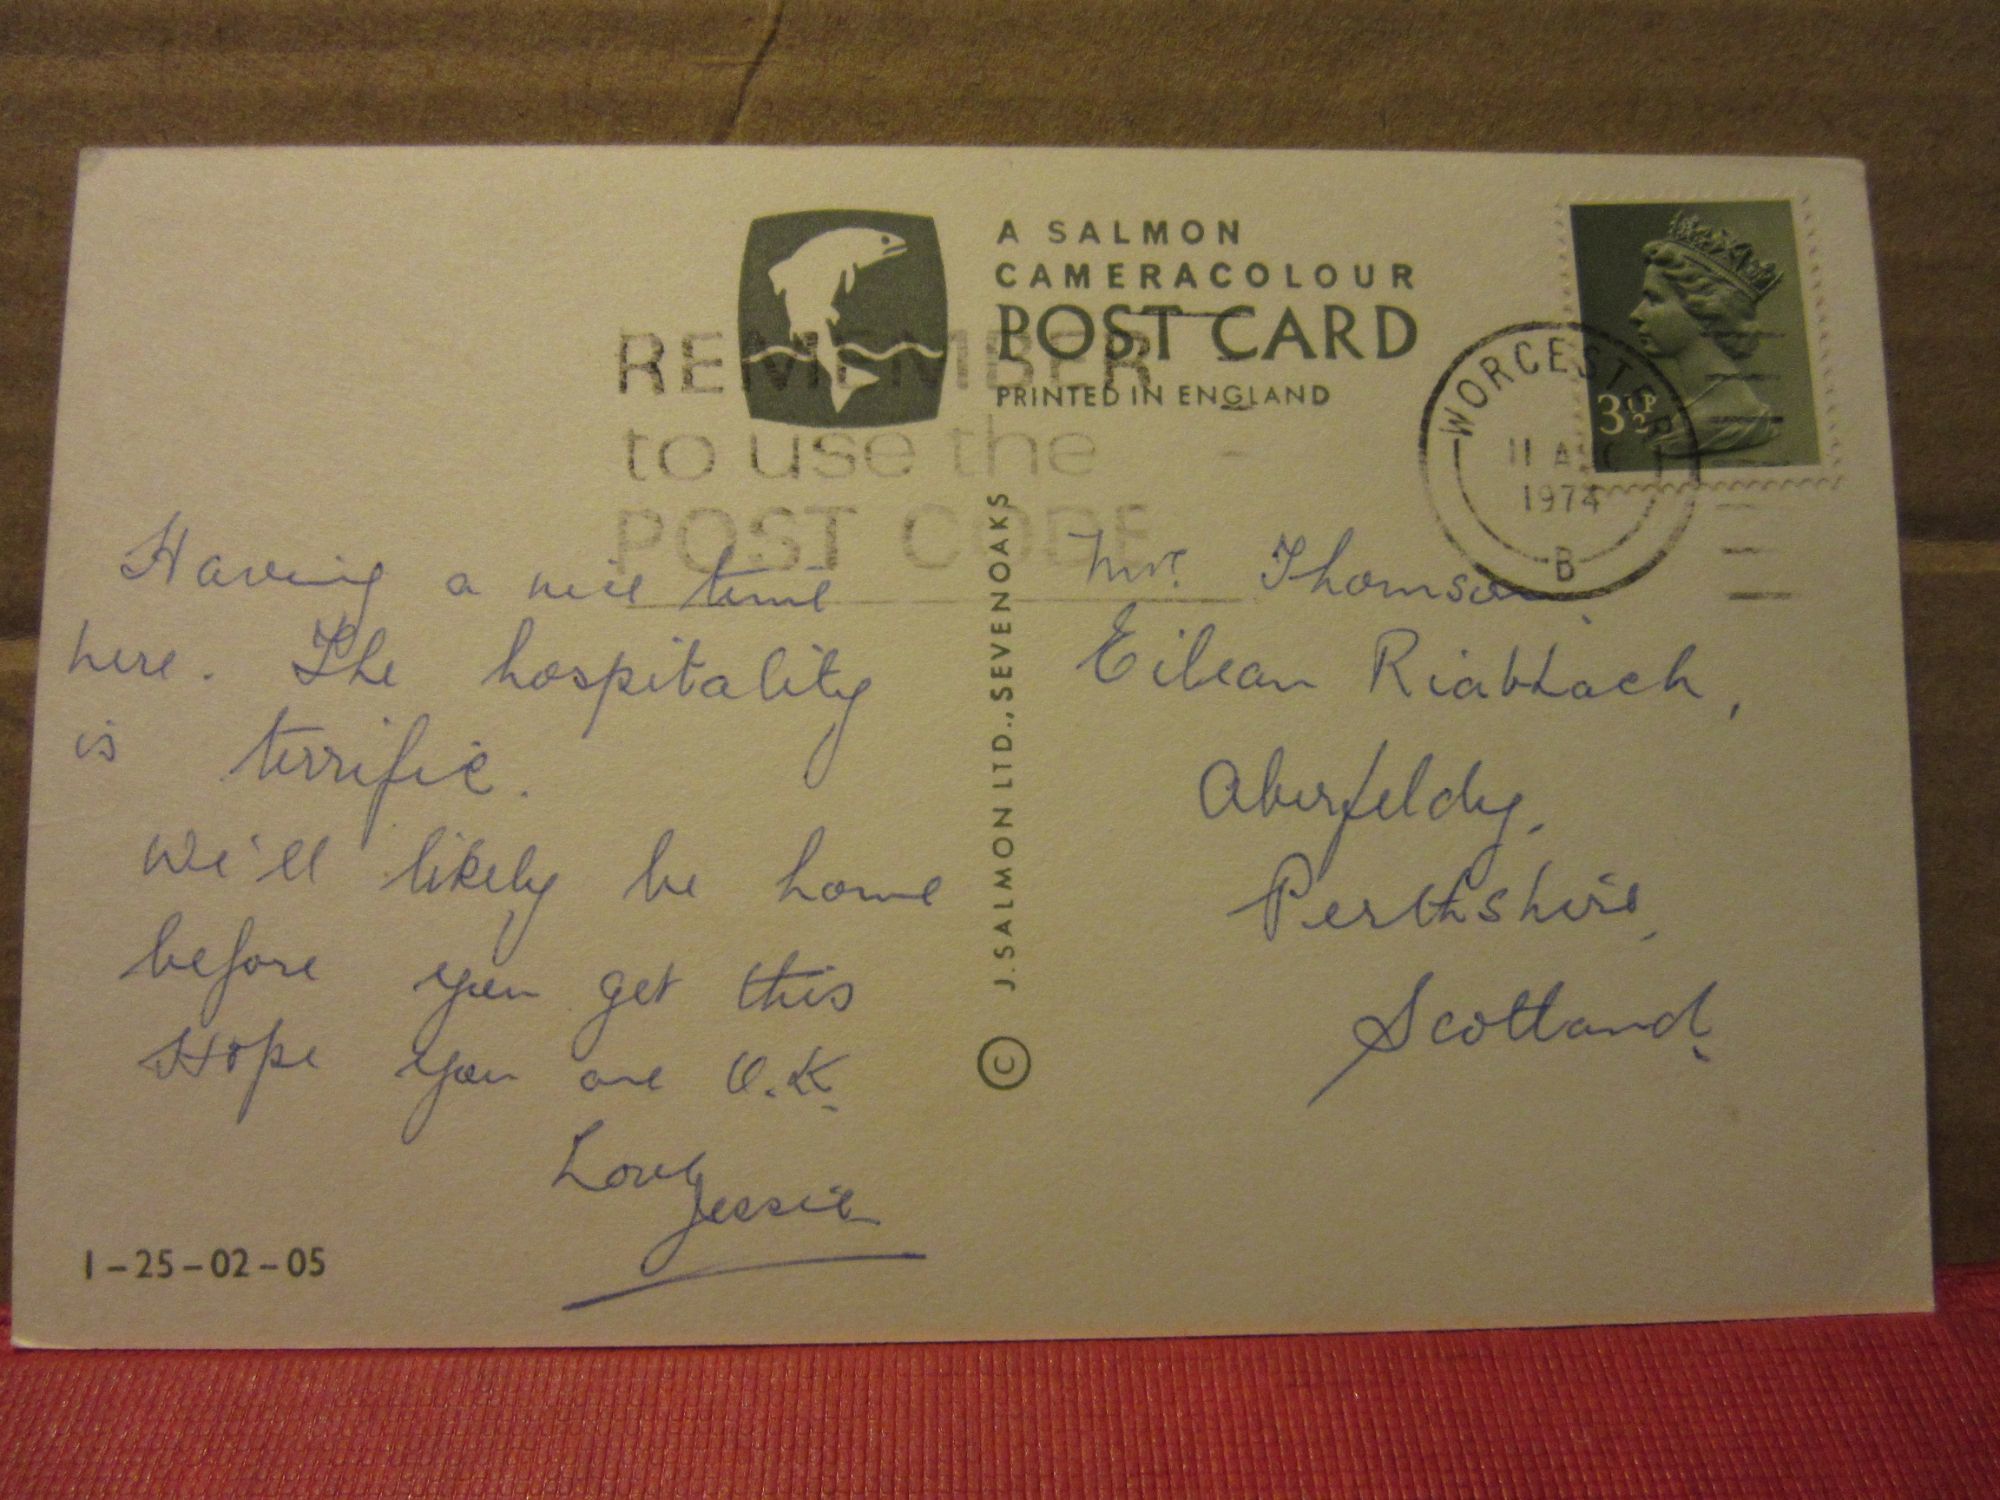 A SALMON
CAMERACOLOUR
POST CARD
PRINTED IN ENGLAND
REMEMBER
to use the
POST CODE
WORCESTER
11 A
1974
B
3½P
Having a nice time
here. The hospitality
is terrific.
We'll likely be home
before you get this
Hope you are O.K.
Love
Jessie
1-25-02-05
© J. SALMON LTD., SEVENOAKS
Thomson
Eilean Riabhach,
Aberfeldy,
Perthshire,
Scotland.